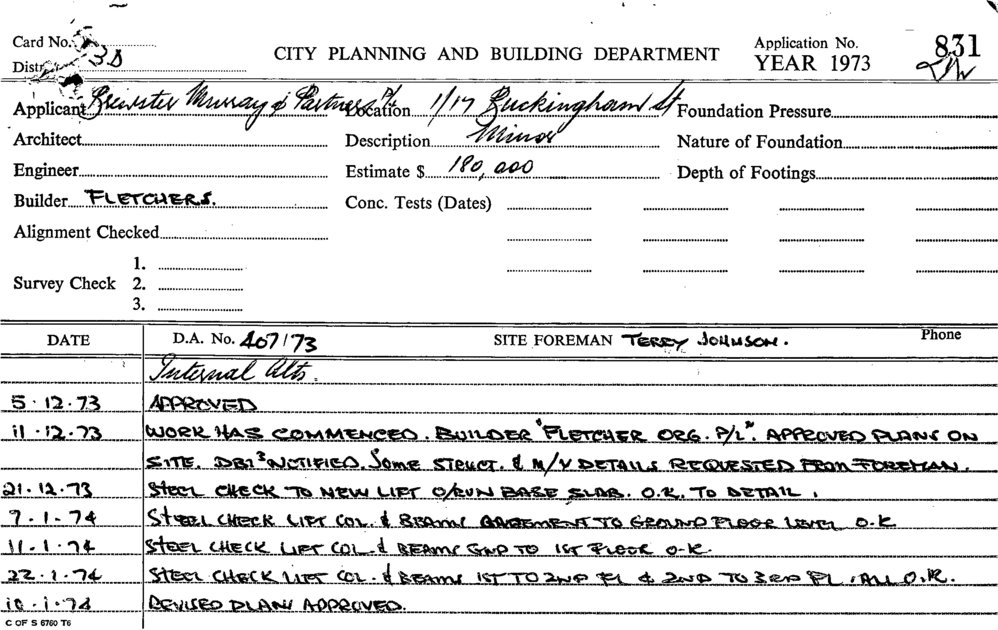 Card No.
CITY PLANNING AND BUILDING DEPARTMENT
Application No. 831
YEAR 1973
District 3D
Applicant Brewster Murray & Partners P/L Location 1/17 Buckingham St Foundation Pressure
Architect Description Minor Nature of Foundation
Engineer Estimate $ 180,000 Depth of Footings
Builder FLETCHERS. Conc. Tests (Dates)
Alignment Checked
1.
Survey Check 2.
3.
DATE D.A. No. 407/73 SITE FOREMAN TERRY JOHNSON. Phone
Internal Alts.
5.12.73 APPROVED
11.12.73 WORK HAS COMMENCED. BUILDER "FLETCHER ORG. P/L". APPROVED PLANS ON
SITE. NOTIFIED. SOME STRUCT. & M/V DETAILS REQUESTED FROM FOREMAN.
21.12.73 STEEL CHECK TO NEW LIFT O/RUN BASE SLAB. O.K. TO DETAIL.
7.1.74 STEEL CHECK LIFT COL. & BEAMS BASEMENT TO GROUND FLOOR LEVEL O.K
11.1.74 STEEL CHECK LIFT COL. & BEAMS GND TO 1ST FLOOR O.K.
22.1.74 STEEL CHECK LIFT COL. & BEAMS 1ST TO 2ND FL & 2ND TO 3RD FL. ALL O.K.
10.1.74 REVISED PLANS APPROVED.
C OF S 6760 T6